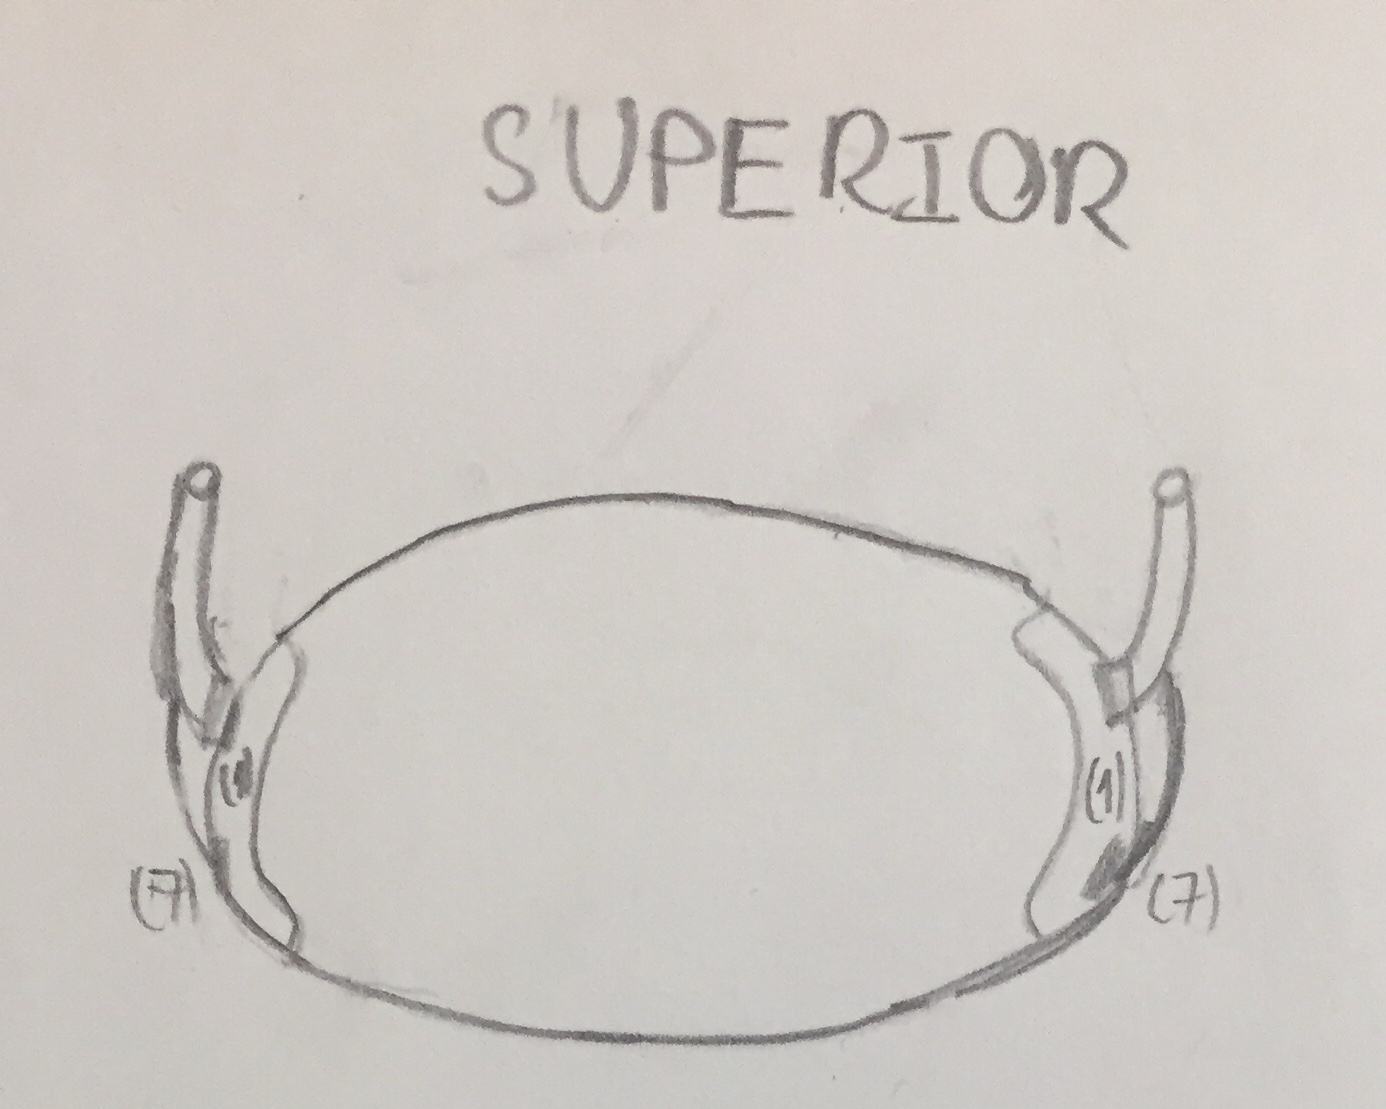 SUPERIOR
(1)
(7)
(7)